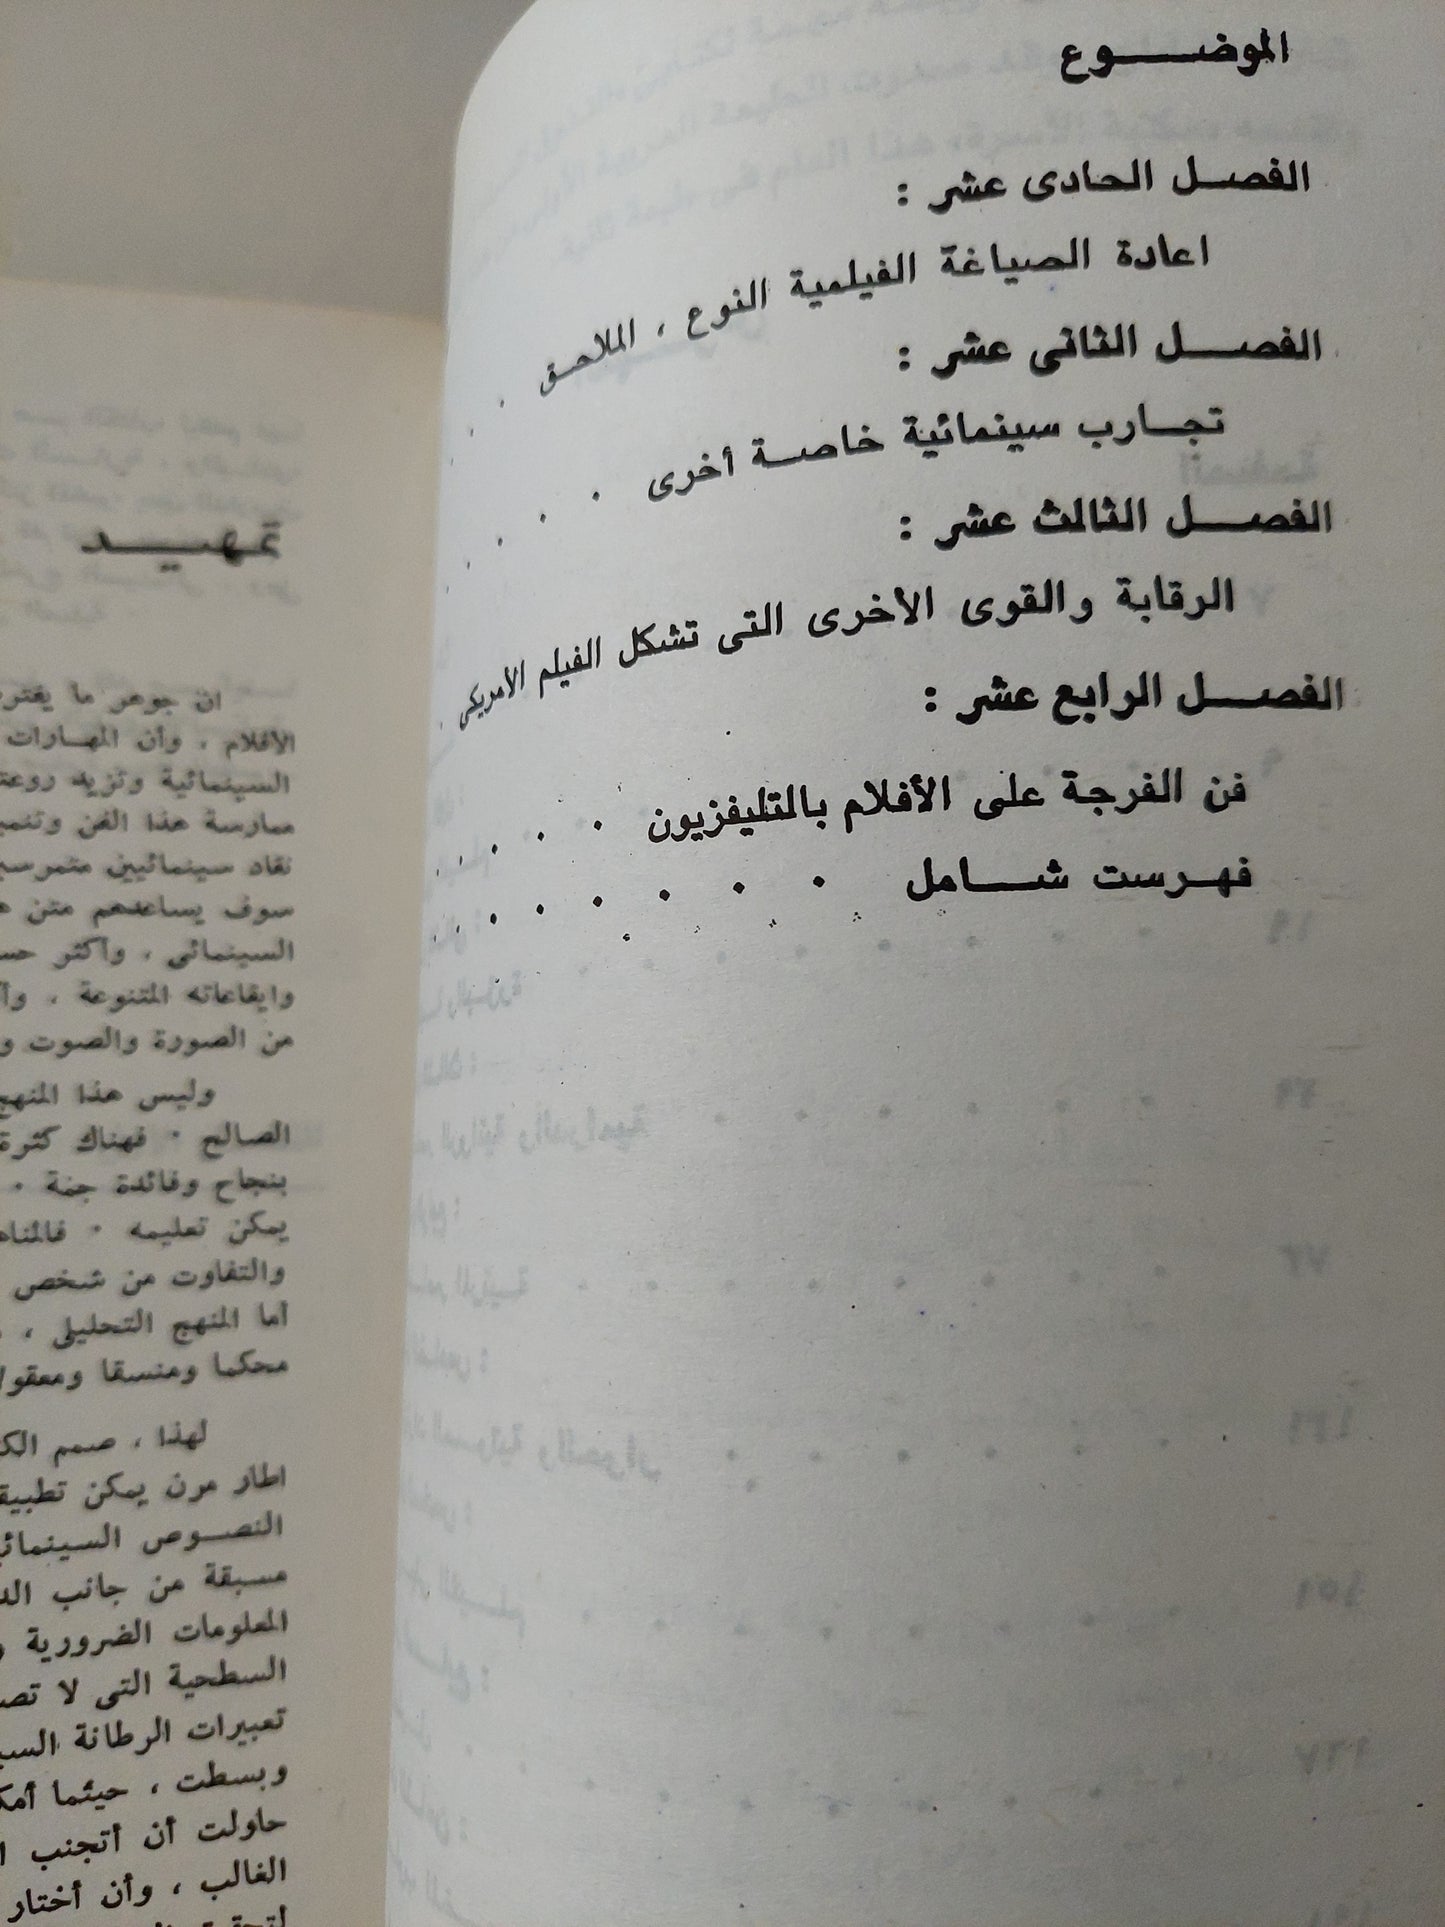 الموضـــــوع
الفصــل الحادى عشر :
اعادة الصياغة الفيلمية النوع ، الملاحـق . .
الفصــــل الثانى عشر :
تجــارب سينمائية خاصــة أخرى . . . .
الفصــــل الثالث عشر :
الرقابة والقوى الأخرى التى تشكل الفيلم الأمريكى
الفصــــل الرابع عشر :
فن الفرجة على الأفلام بالتليفزيون . . . .
فهـرست شـــامل . . . . . . .
تمهيـــــد
ان جوهر ما يفتر
الأفلام ، وأن المهـارات
السينمائية وتزيد روعة
ممارسة هذا الفن وتنمي
نقاد سينمائيين متمرسي
سوف يساعدهم متن ه
السينمائى ، وأكثر حس
وايقاعاته المتنوعة ، وأ
من الصورة والصوت و
وليس هذا المنهج
الصالح . فهناك كثرة
بنجاح وفائدة جمة .
يمكن تعليمه . فالمناه
والتفاوت من شخص
أما المنهج التحليلى ،
محكما ومنسقا ومعقولا
لهذا ، صمم الك
اطار مرن يمكن تطبيق
النصــوص السينمائي
مسبقة من جانب الد
المعلومات الضرورية و
السطحية التى لا تص
تعبيرات الرطانة السي
وبسطت ، حيثما أمك
حاولت أن أتجنب ا
الغالب ، وأن أختار